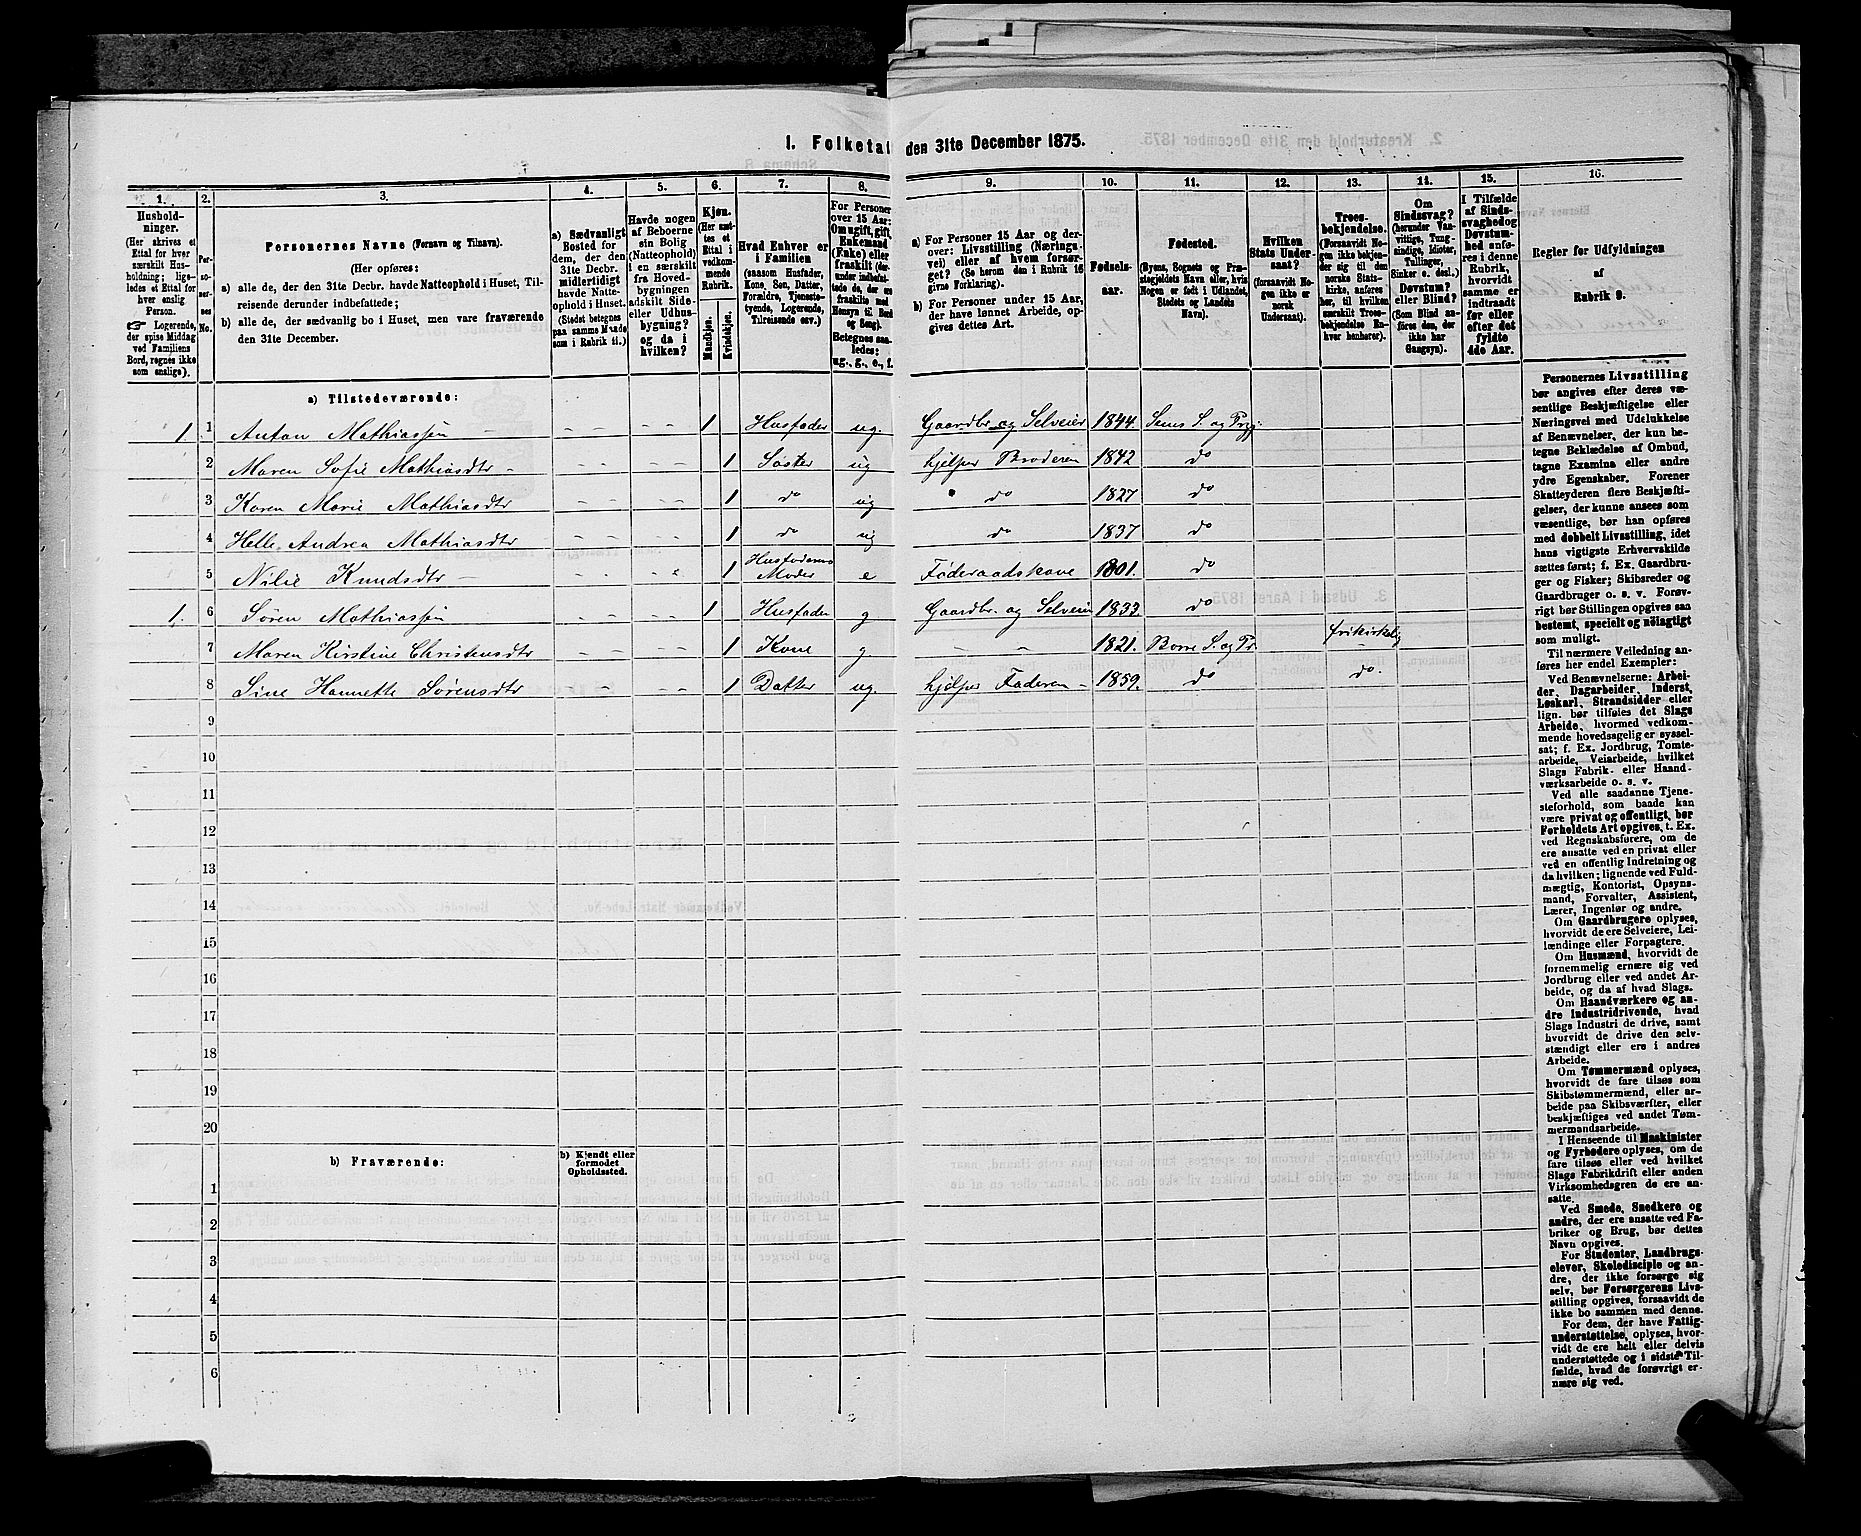 I. Folketal den 31te December 1875.
1. 2. 3. 4. 5. 6. 7. 8. 9. 10. 11. 12. 13. 14. 15. 16.
Hushold-
ninger.
(Her skrives et
Ettal for hver
særskilt Hus-
holdning; lige-
ledes et Ettal for
hver enslig
Person.
☞ Logerende,
der spise Middag
ved Familiens
Bord, regnes ikke
som enslige).
Per-
so-
ner-
nes
No.
Personernes Navne (Fornavn og Tilnavn).
(Her opføres:
a) alle de, der den 31te Decbr. havde Natteophold i Huset, Til-
reisende derunder indbefattede;
b) alle de, der sædvanlig bo i Huset, men vare fraværende
den 31te December.
a) Sædvanligt
Bosted for
dem, der den
31te Decbr.
midlertidigt
havde Natte-
ophold i Huset.
(Stedet betegnes
paa samme Maade
som i Rubrik 11.)
Havde nogen
af Beboerne
sin Bolig
(Natteophold)
i en særskilt
fra Hoved-
bygningen
adskilt Side-
eller Udhus-
bygning?
og da i
hvilken?
Kjøn.
(Her sæt-
tes et
Ettal i
vedkom-
mende
Rubrik.
Mandkjøn.
Kvindekjøn.
Hvad Enhver er
i Familien
(saasom Husfader,
Kone, Søn, Datter,
Forældre, Tjeneste-
tyende, Logerende,
Tilreisende osv.)
For Personer
over 15 Aar:
Om ugift, gift,
Enkemand
(Enke) eller
fraskilt
Betegnes saa-
ledes:
ug., g., e., f.
a) For Personer 15 Aar og der-
over: Livsstilling (Nærings-
vei) eller af hvem forsør-
get? (Se herom den i Rubrik 16
givne Forklaring).
b) For Personer under 15 Aar,
der have lønnet Arbeide, op-
gives dettes Art.
Fødsels-
aar.
Fødested.
(Byens, Sognets og Præ-
stegjeldets Navn eller, hvis
Nogen er født i Udlandet,
Stedets og Landets
Navn).
Hvilken
Stats Under-
saat?
(forsaavidt No-
gen ikke er
norsk
Undersaat).
Troes-
bekjendelse.
(Forsaavidt No-
gen ikke bekjen-
der sig til den
norske Stats-
kirke, anføres
her, til hvilken
særskilt Troes-
bekjendelse En-
hver henhører).
Om
Sindssvag?
(herunder Van-
vittige, Tung-
sindige, Idioter,
Tullinger,
Sinker o. desl.)
Døvstum?
eller Blind?
(Som Blind an-
føres den, der
ikke har
Gangsyn).
I Tilfælde
af Sinds-
svaghed og
Døvstum-
hed anfø-
res i denne
Rubrik,
hvorvidt
samme er
indtraadt
før eller
efter det
fyldte
4de Aar.
Regler for Udfyldningen
af
Rubrik 9.
a) Tilstedeværende:
1. 1 Anton Mathiassen – – – – – 1 Husfader ug. Gaardbr. og Selveier 1844. Sems S. og Prgj.
2 Maren Sofie Mathiasdtr – – – – – 1 Søster ug hjelper Broderen 1842 do
3 Karen Marie Mathiasdtr – – – – 1 do ug do 1827 do
4 Helle Andrea Mathiasdtr – – – – 1 do ug do 1837 do
5 Nilie Knudsdtr – 1 Husfaderens Moder e Føderaadskone 1801. do
1. 6 Søren Mathiassen – – – – 1 Husfader g Gaardbr. og Selveier 1833. do
7 Maren Kirstine Christensdtr – – – – 1 Kone g – – 1821. Borre S. og Pr. frikirkelig
8 Sine Hannette Sørensdtr – – – – 1 Datter ug. hjelper Faderen – 1859. do do.
9
10
11
12
13
14
15
16
17
18
19
20
b) Fraværende:
b) Kjendt eller
formodet
Opholdssted.
1
2
3
4
5
6
Personernes Livsstilling
bør angives efter deres væ-
sentlige Beskjæftigelse eller
Næringsvei med Udelukkelse
af Benævnelser, der kun be-
tegne Beklædelse af Ombud,
tagne Examina eller andre
ydre Egenskaber. Forener
Skatteyderen flere Beskjæfti-
gelser, der kunne ansees som
væsentlige, bør han opføres
med dobbelt Livsstilling, idet
hans vigtigste Erhvervskilde
sættes først; f. Ex. Gaardbru-
ger og Fisker; Skibsreder og
Gaardbruger o. s. v. Forøv-
rigt bør Stillingen opgives saa
bestemt, specielt og nöiagtigt
som muligt.
Til nærmere Veiledning an-
føres her endel Exempler:
Ved Benævnelserne: Arbei-
der, Dagarbeider, Inderst,
Løskarl, Strandsidder eller
lign. bør tilføies det Slags
Arbeide, hvormed vedkom-
mende hovedsagelig er syssel-
sat; f. Ex. Jordbrug, Tomte-
arbeide, Veiarbeide, hvilket
Slags Fabrik- eller Haand-
værksarbeide o. s. v.
Ved alle saadanne Tjene-
steforhold, som baade kan
være privat og offentligt, bør
Forholdets Art opgives, t. Ex.
ved Regnskabsførere, om de
ere ansatte ved en privat eller
ved en offentlig Indretning og
da hvilken; lignende ved Fuld-
mægtig, Kontorist, Opsyns-
mand, Forvalter, Assistent,
Lærer, Ingeniør og andre.
Om Gaardbrugere oplyses,
hvorvidt de ere Selveiere, Lei-
lændinge eller Forpagtere.
Om Husmænd, hvorvidt de
fornemmelig ernære sig ved
Jordbrug eller ved andet Ar-
beide, og da af hvad Slags.
Om Haandværkere og an-
dre Industridrivende, hvad
Slags Industri de drive, samt
hvorvidt de drive den selv-
stændigt eller ere i andres
Arbeide.
Om Tømmermænd oplyses,
hvorvidt de fare tilsøs som
Skibstømmermænd, eller ar-
beide paa Skibsværfter, eller
beskjæftiges ved andet Tøm-
mermandsarbeide.
I Henseende til Maskinister
og Fyrbødere oplyses, om de
fare tilsøs eller ved hvilket
Slags Fabrikdrift eller anden
Virksomhedsgren de ere an-
satte.
Ved Smede, Snedkere og
andre, der ere ansatte ved Fa-
briker og Brug, bør dettes
Navn opgives.
For Studenter, Landbrugs-
elever, Skoledisciple og an-
dre, der ikke forsørge sig
selv, bør Forsørgerens Livs-
stilling opgives, forsaavidt de
ikke bo sammen med denne.
For dem, der have Fattig-
understøttelse, oplyses, hvor-
vidt de ere helt eller delvis
understøttede og i sidste Til-
fælde, hvad de forøvrigt er-
nære sig ved.